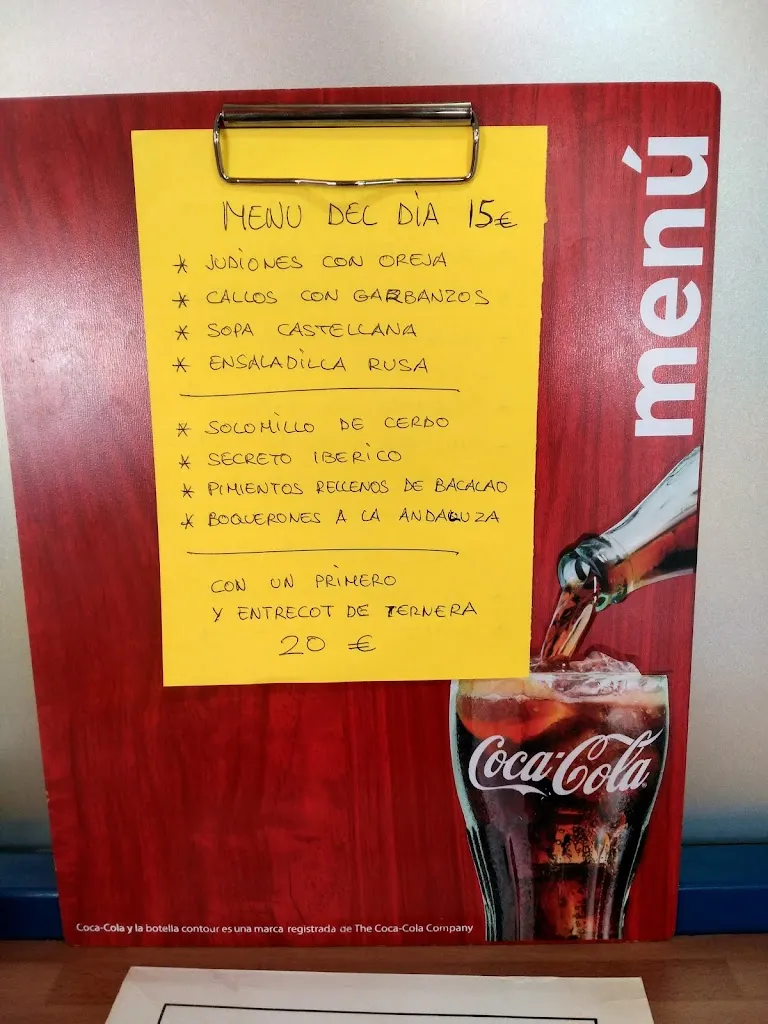 MENU DEL DÍA 15€
* JUDIONES CON OREJA
* CALLOS CON GARBANZOS
* SOPA CASTELLANA
* ENSALADILLA RUSA
* SOLOMILLO DE CERDO
* SECRETO IBERICO
* PIMIENTOS RELLENOS DE BACALAO
* BOQUERONES A LA ANDALUZA
CON UN PRIMERO
Y ENTRECOT DE TERNERA
20 €
menú
Coca-Cola
Coca-Cola y la botella contour es una marca registrada de The Coca-Cola Company